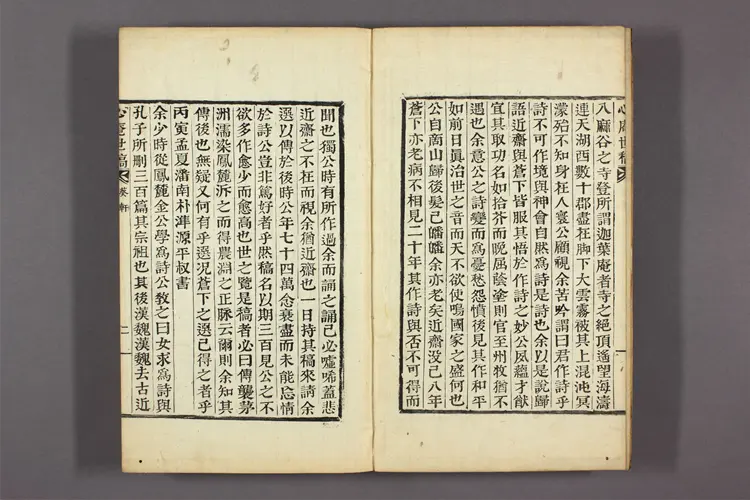 八麻谷之寺登所謂迦葉庵者寺之絕頂遙望海濤
連天湖西數十郡盡在脚下大雲霧被其上混沌冥
濛殆不知身在人寰公顧視余苦吟謂曰君作詩乎
詩不可作境與神會自然爲詩是詩也余以是說歸
語近齋與蒼下皆服其悟於作詩之妙公夙蘊才猷
宜其取功名如拾芥而阨屈蔭塗則官至州牧猶不
遇也余意公之詩變而爲憂愁怨憤後見其作和平
如前日眞治世之音而天不欲使鳴國家之盛何也
公自商山歸後髮已皤皤余亦老矣近齋没已八年
蒼下亦老病不相見二十年其作詩與否不可得而
聞也獨公時有所作過余而誦之誦已必噓唏蓋悲
近齋之不在而視余猶近齋也一日持其稿來請余
選以傳於後時公年七十四萬念衰盡而未能忘情
於詩公豈非篤好者乎然稿名以期三百見公之不
欲多作愈少而愈高也世之覽是稿者必曰傳襲茅
洲濡染鳳麓泝之而得農淵之正脉云爾則余知其
傳後也無疑又何有乎選况蒼下之選已得之者乎
丙寅孟夏潘南朴準源平叔書
余少時從鳳麓金公學爲詩公敎之曰女求爲詩與
孔子所刪三百篇其宗祖也其後漢魏漢魏去古近
心庵世稿
二